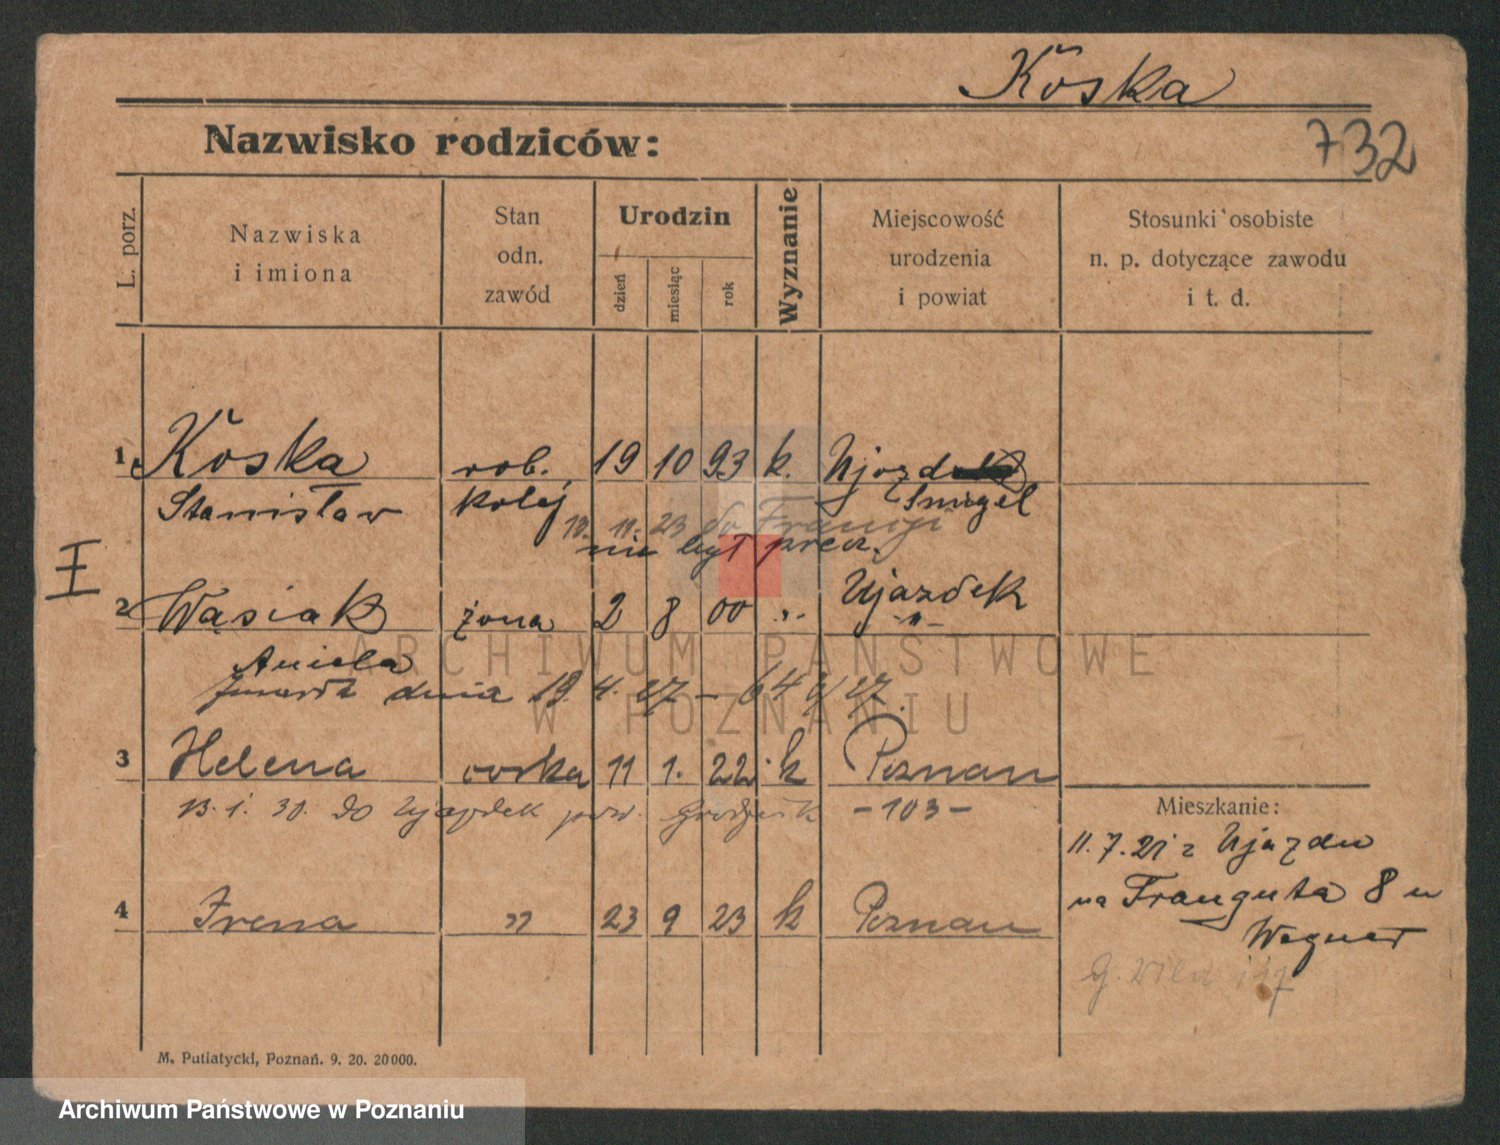 Koska
Nazwisko rodziców:
732
L. porz.
Nazwiska
i imiona
Stan
odn.
zawód
Urodzin
dzień
miesiąc
rok
Wyznanie
Miejscowość
urodzenia
i powiat
Stosunki osobiste
n. p. dotyczące zawodu
i t. d.
1 Koska rob. 19 10 93 k.
Stanisław kolej Śmigel
13. 11. 23 do
nie był
I
2 Wąsiak żona 2 8 00 Ujazdek
Aniela -"-
dnia 19. 4. 27 –
3 Helena córka 11 1. 22 k Poznań
13. 1. 30. do Ujazdek pow. - 103 -
4 Irena " 23 9 23 k Poznań
Mieszkanie:
11. 7. 21 z Ujazdu
na 8 u
Wegner
M. Putiatycki, Poznań. 9. 20. 20000.
ARCHIWUM PAŃSTWOWE
W POZNANIU
Archiwum Państwowe w Poznaniu